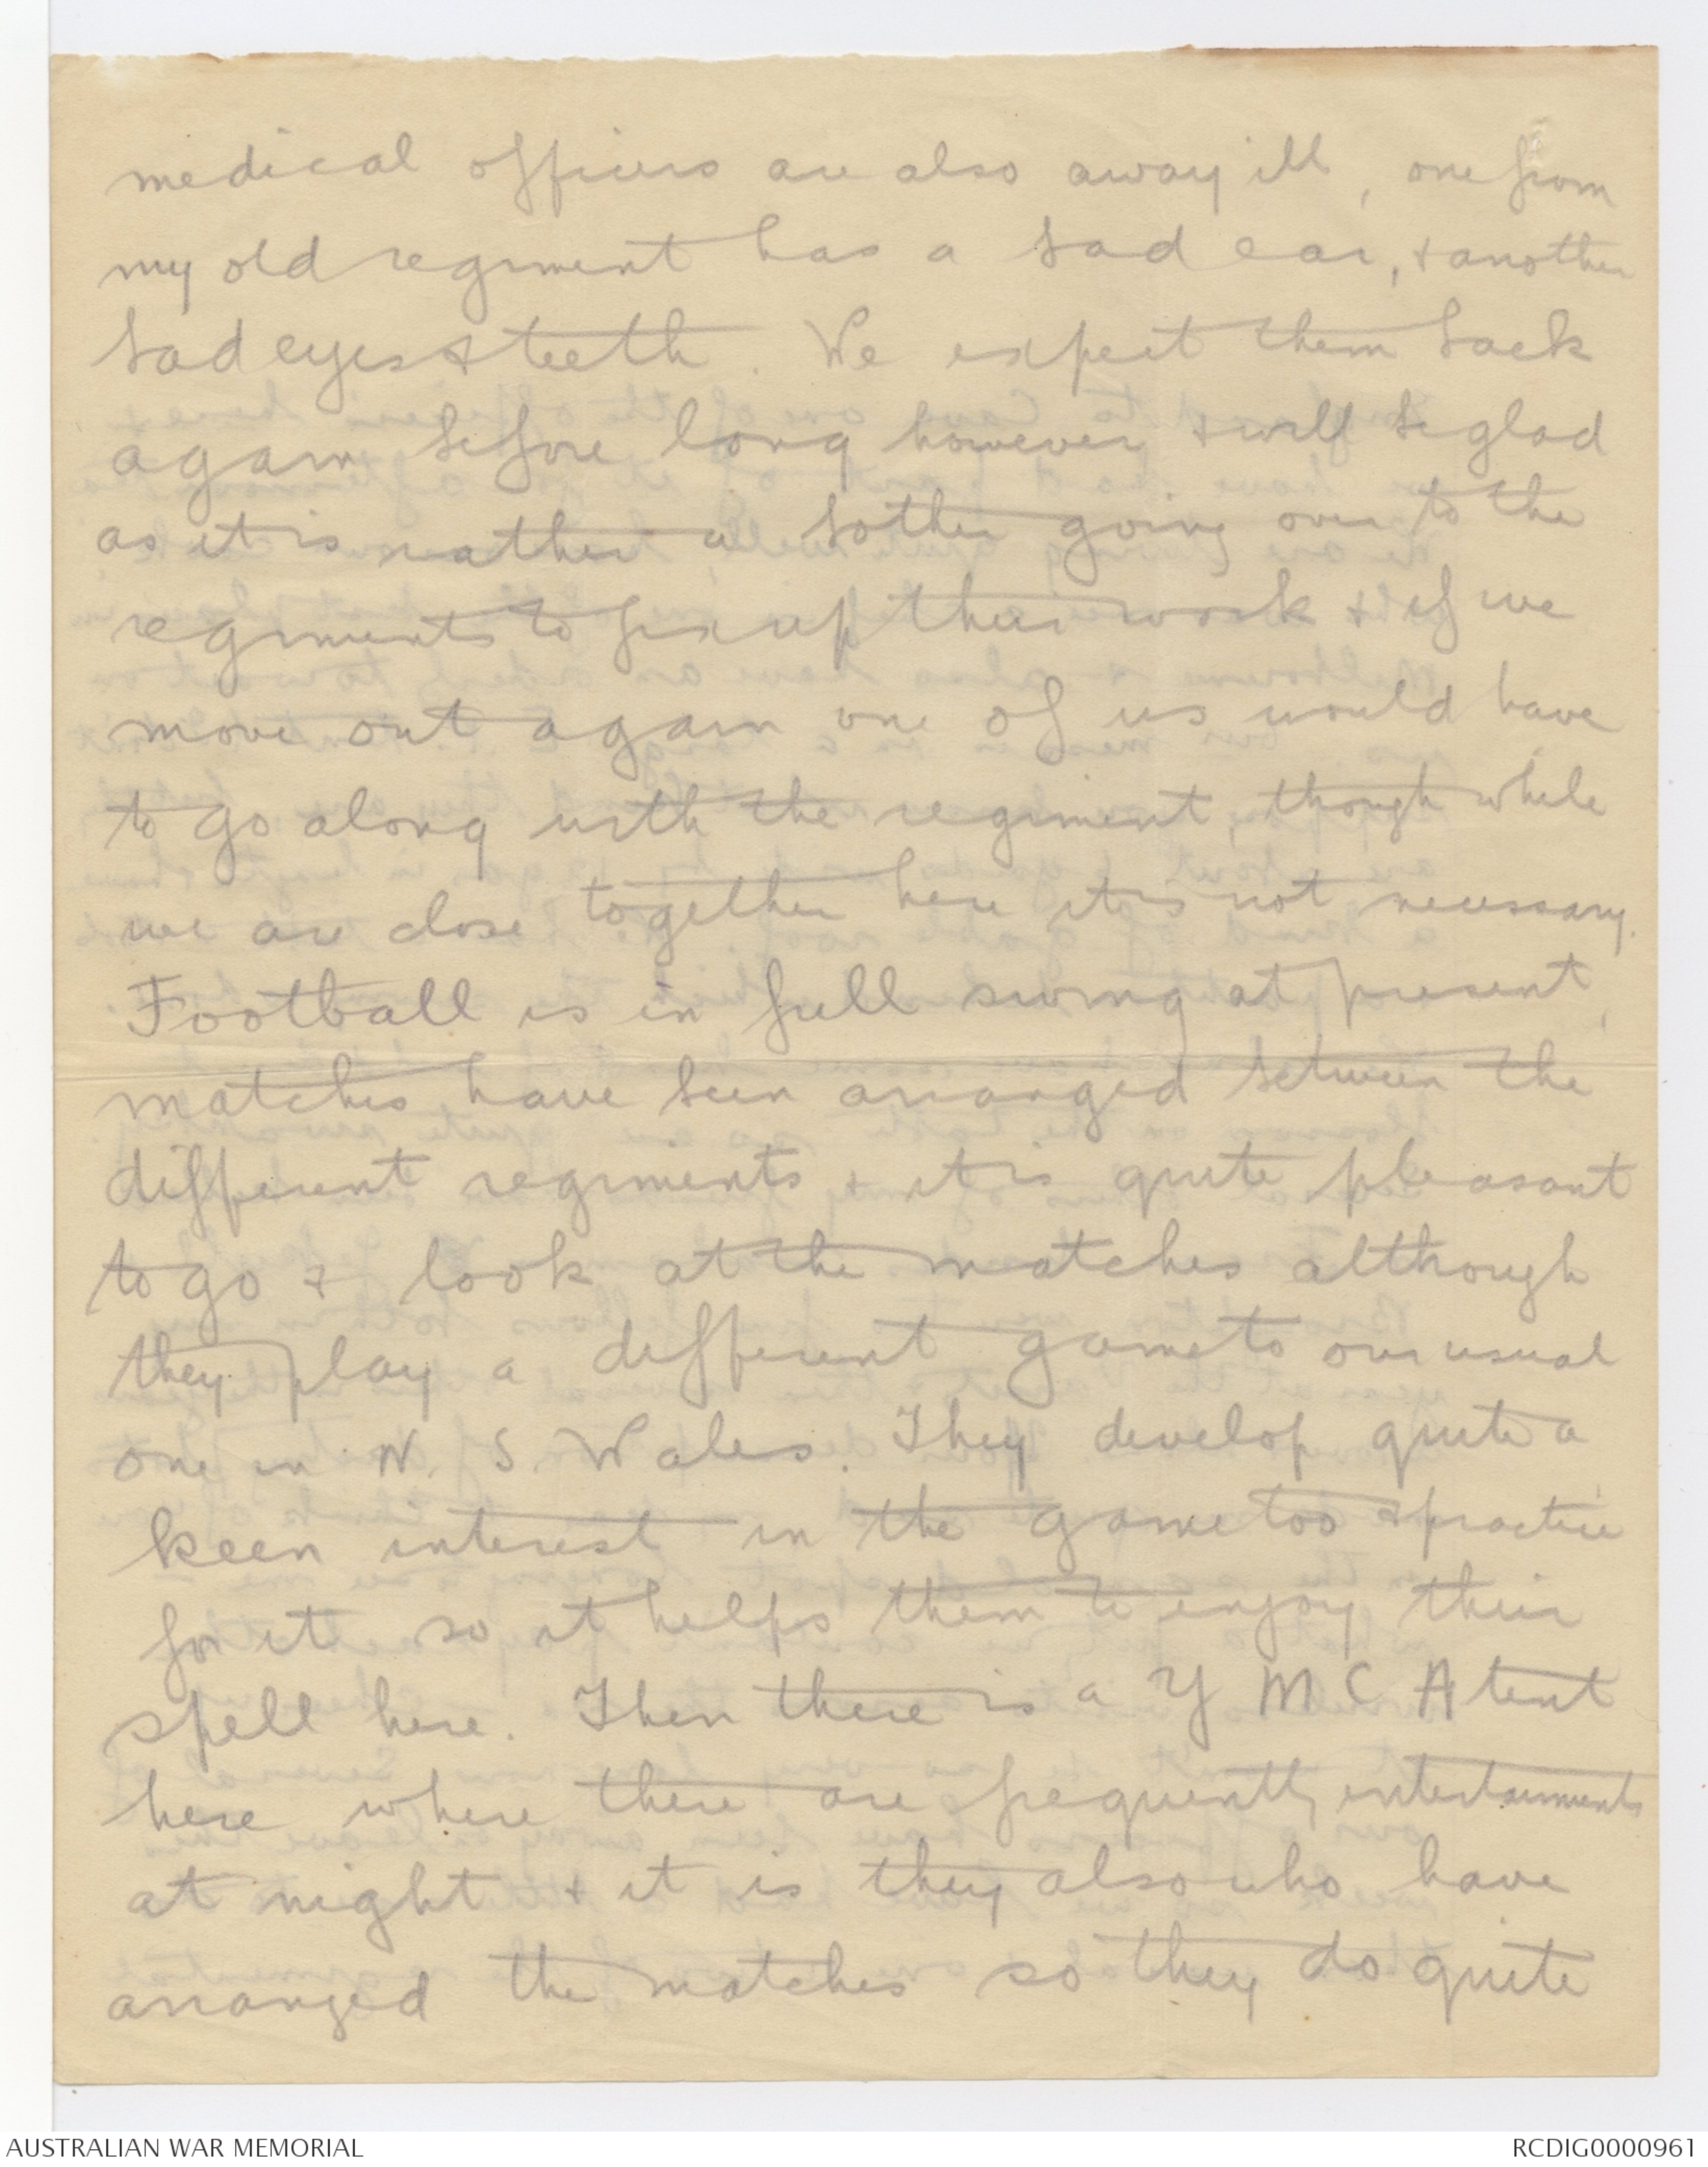 medical officers are also away ill, one from
my old regiment has a bad ear, & another
bad eyes & teeth. We expect them back
again before long however & will be glad
as it is rather a bother going over to the
regiments to fix up their work & if we
move out again one of us would have
to go along with the regiment, though while
we are close together here it is not necessary.
Football is in full swing at present,
matches have been arranged between the
different regiments & it is quite pleasant
to go & look at the matches although
they play a different game to our usual
one in N. S. Wales. They develop quite a
keen interest in the game too & practice
for it so it helps them to enjoy their
spell here. Then there is a Y M C A tent
here where there are frequently entertainments
at night & it is they also who have
arranged the matches so they do quite
AUSTRALIAN WAR MEMORIAL
RCDIG0000961